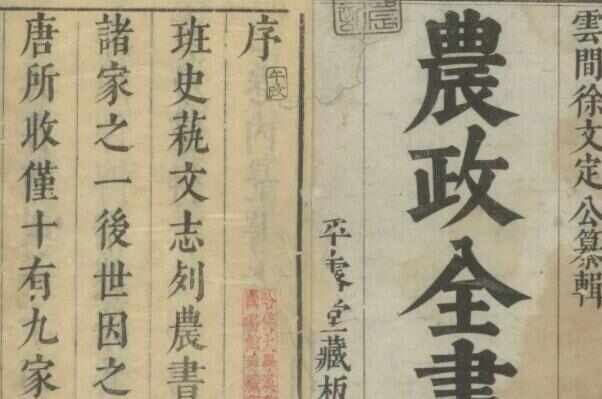 雲間徐文定公纂輯
農政全書
平露堂藏板
序
班史蓺文志列農書
諸家之一後世因之
唐所收僅十有九家